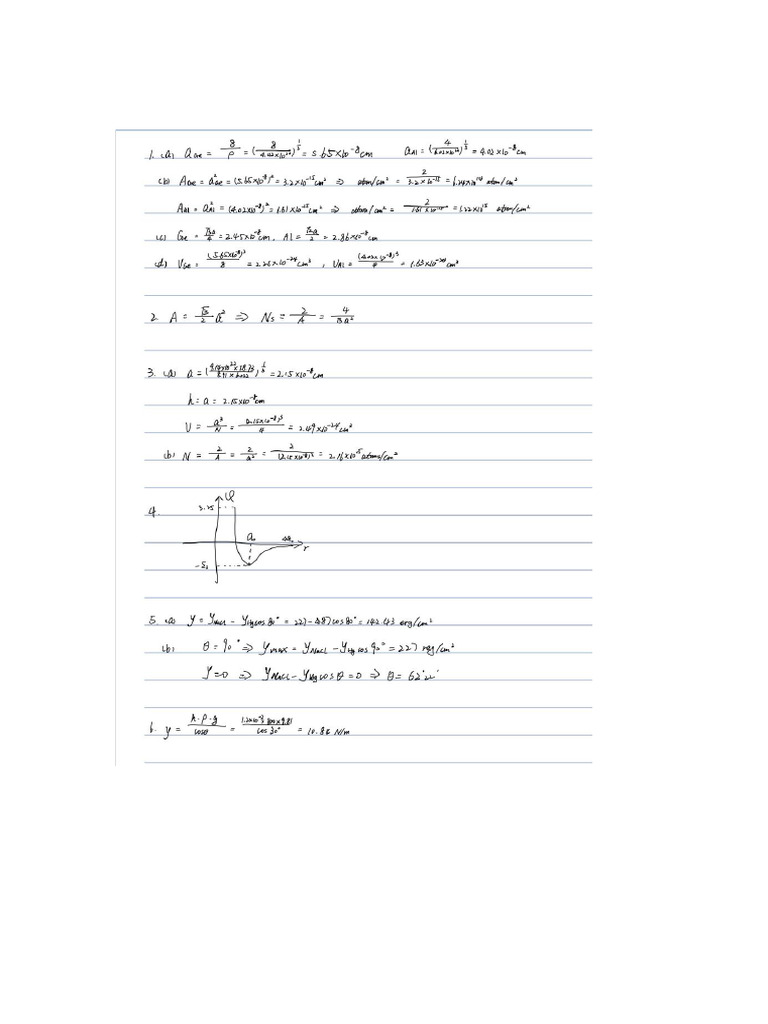 1. (a) a_Ge = 8/ρ = (8/4.42×10²²)^(1/3) = 5.65×10⁻⁸cm    a_Al = (4/6.02×10²²)^(1/3) = 4.02×10⁻⁸cm
(b) A_Ge = a²_Ge = (5.65×10⁻⁸)² = 3.2×10⁻¹⁵cm² ⇒ atom/cm² = 2/3.2×10⁻¹⁵ = 6.24×10¹⁴ atom/cm²
A_Al = a²_Al = (4.02×10⁻⁸)² = 1.61×10⁻¹⁵cm² ⇒ atom/cm² = 2/1.61×10⁻¹⁵ = 1.22×10¹⁵ atom/cm²
(c) Ge = √3a/4 = 2.45×10⁻⁸cm, Al = √2a/2 = 2.86×10⁻⁸cm
(d) V_Ge = (5.65×10⁻⁸)³/8 = 2.26×10⁻²⁴cm³, V_Al = (4.02×10⁻⁸)³/4 = 1.63×10⁻²⁴cm³
2. A = √3/2 a² ⇒ Ns = 2/A = 4/√3a²
3. (a) a = ( )^(1/3) = 2.15×10⁻⁸cm
h = a = 2.15×10⁻⁸cm
V = a³/N = (2.15×10⁻⁸)³/4 = 2.49×10⁻²⁴cm³
(b) N = 2/A = 2/a² = 2/(2.15×10⁻⁸)² = 2.16×10¹⁵atoms/cm²
4.
φ
3.25
a₀
r
5. (a) y = y_NaCl - y_Hg cos80° = 227-487cos80° = 142.43 erg/cm²
(b) θ = 90° ⇒ y_max = y_NaCl - y_Hg cos90° = 227 erg/cm²
y=0 ⇒ y_NaCl - y_Hg cosθ = 0 ⇒ θ =
6. y = h·ρ·g/cosθ = /cos30° = 10.86 N/m